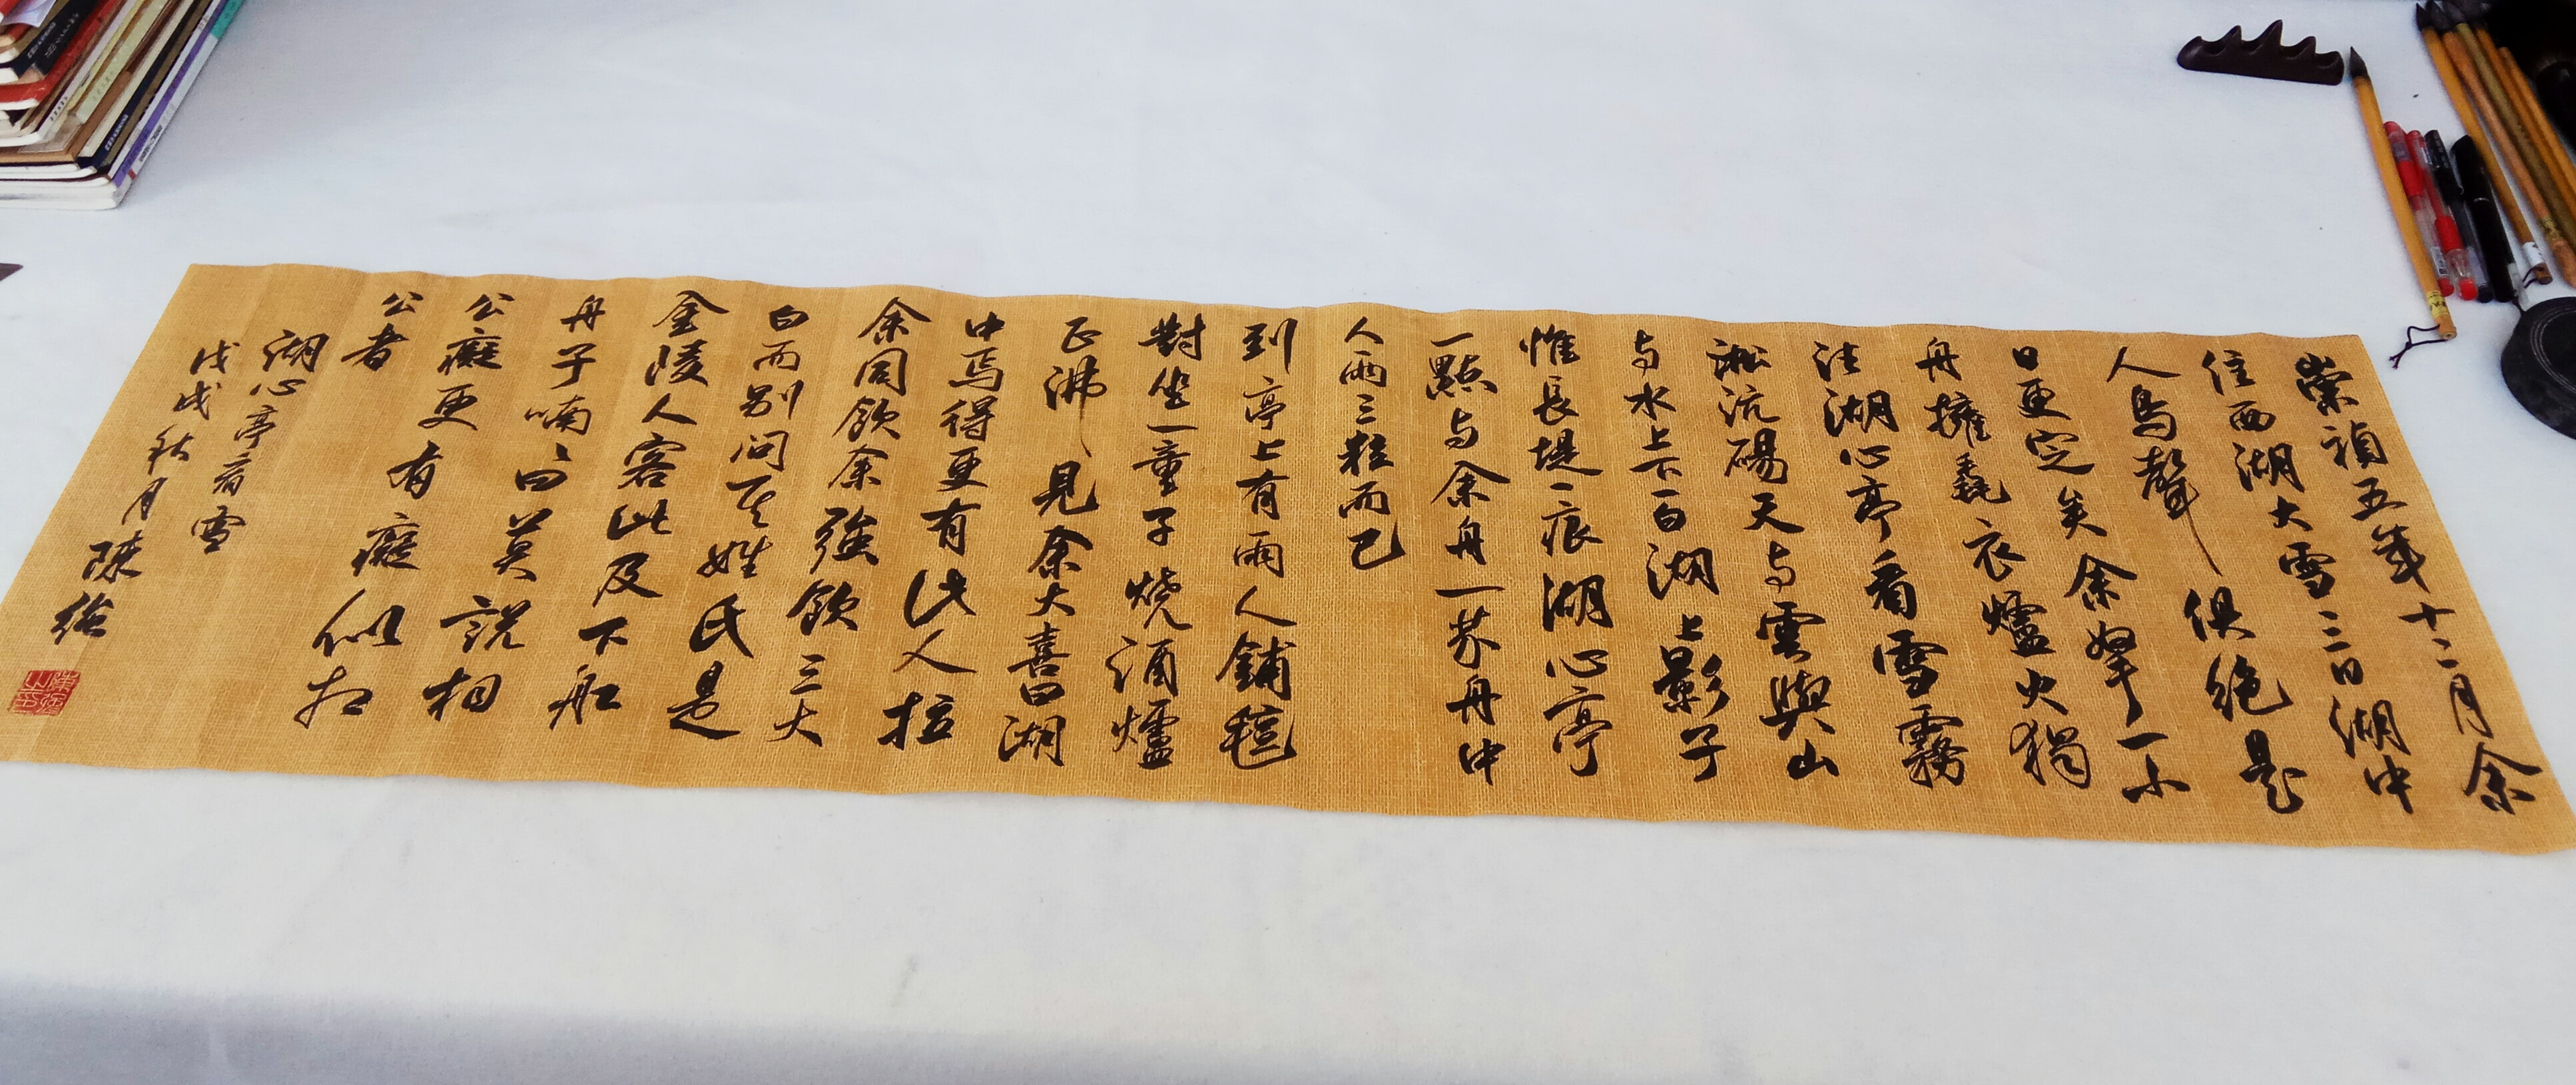 崇禎五年十二月余
住西湖大雪三日湖中
人鳥聲俱絕是
日更定矣余拏一小
舟擁毳衣爐火獨
往湖心亭看雪霧
淞沆碭天与雲與山
与水上下一白湖上影子
惟長堤一痕湖心亭
一點与余舟一芥舟中
人兩三粒而已
到亭上有兩人鋪氈
對坐一童子燒酒爐
正沸見余大喜曰湖
中焉得更有此人拉
余同飲余強飲三大
白而別問其姓氏是
金陵人客此及下船
舟子喃曰莫說相
公癡更有癡似相
公者
湖心亭看雪
戊戌秋月陳